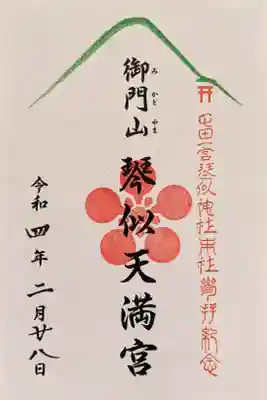 屯田一宮琴似神社末社參拝紀念
御門山 琴似天満宮
み かど やま
令和四年二月廿八日